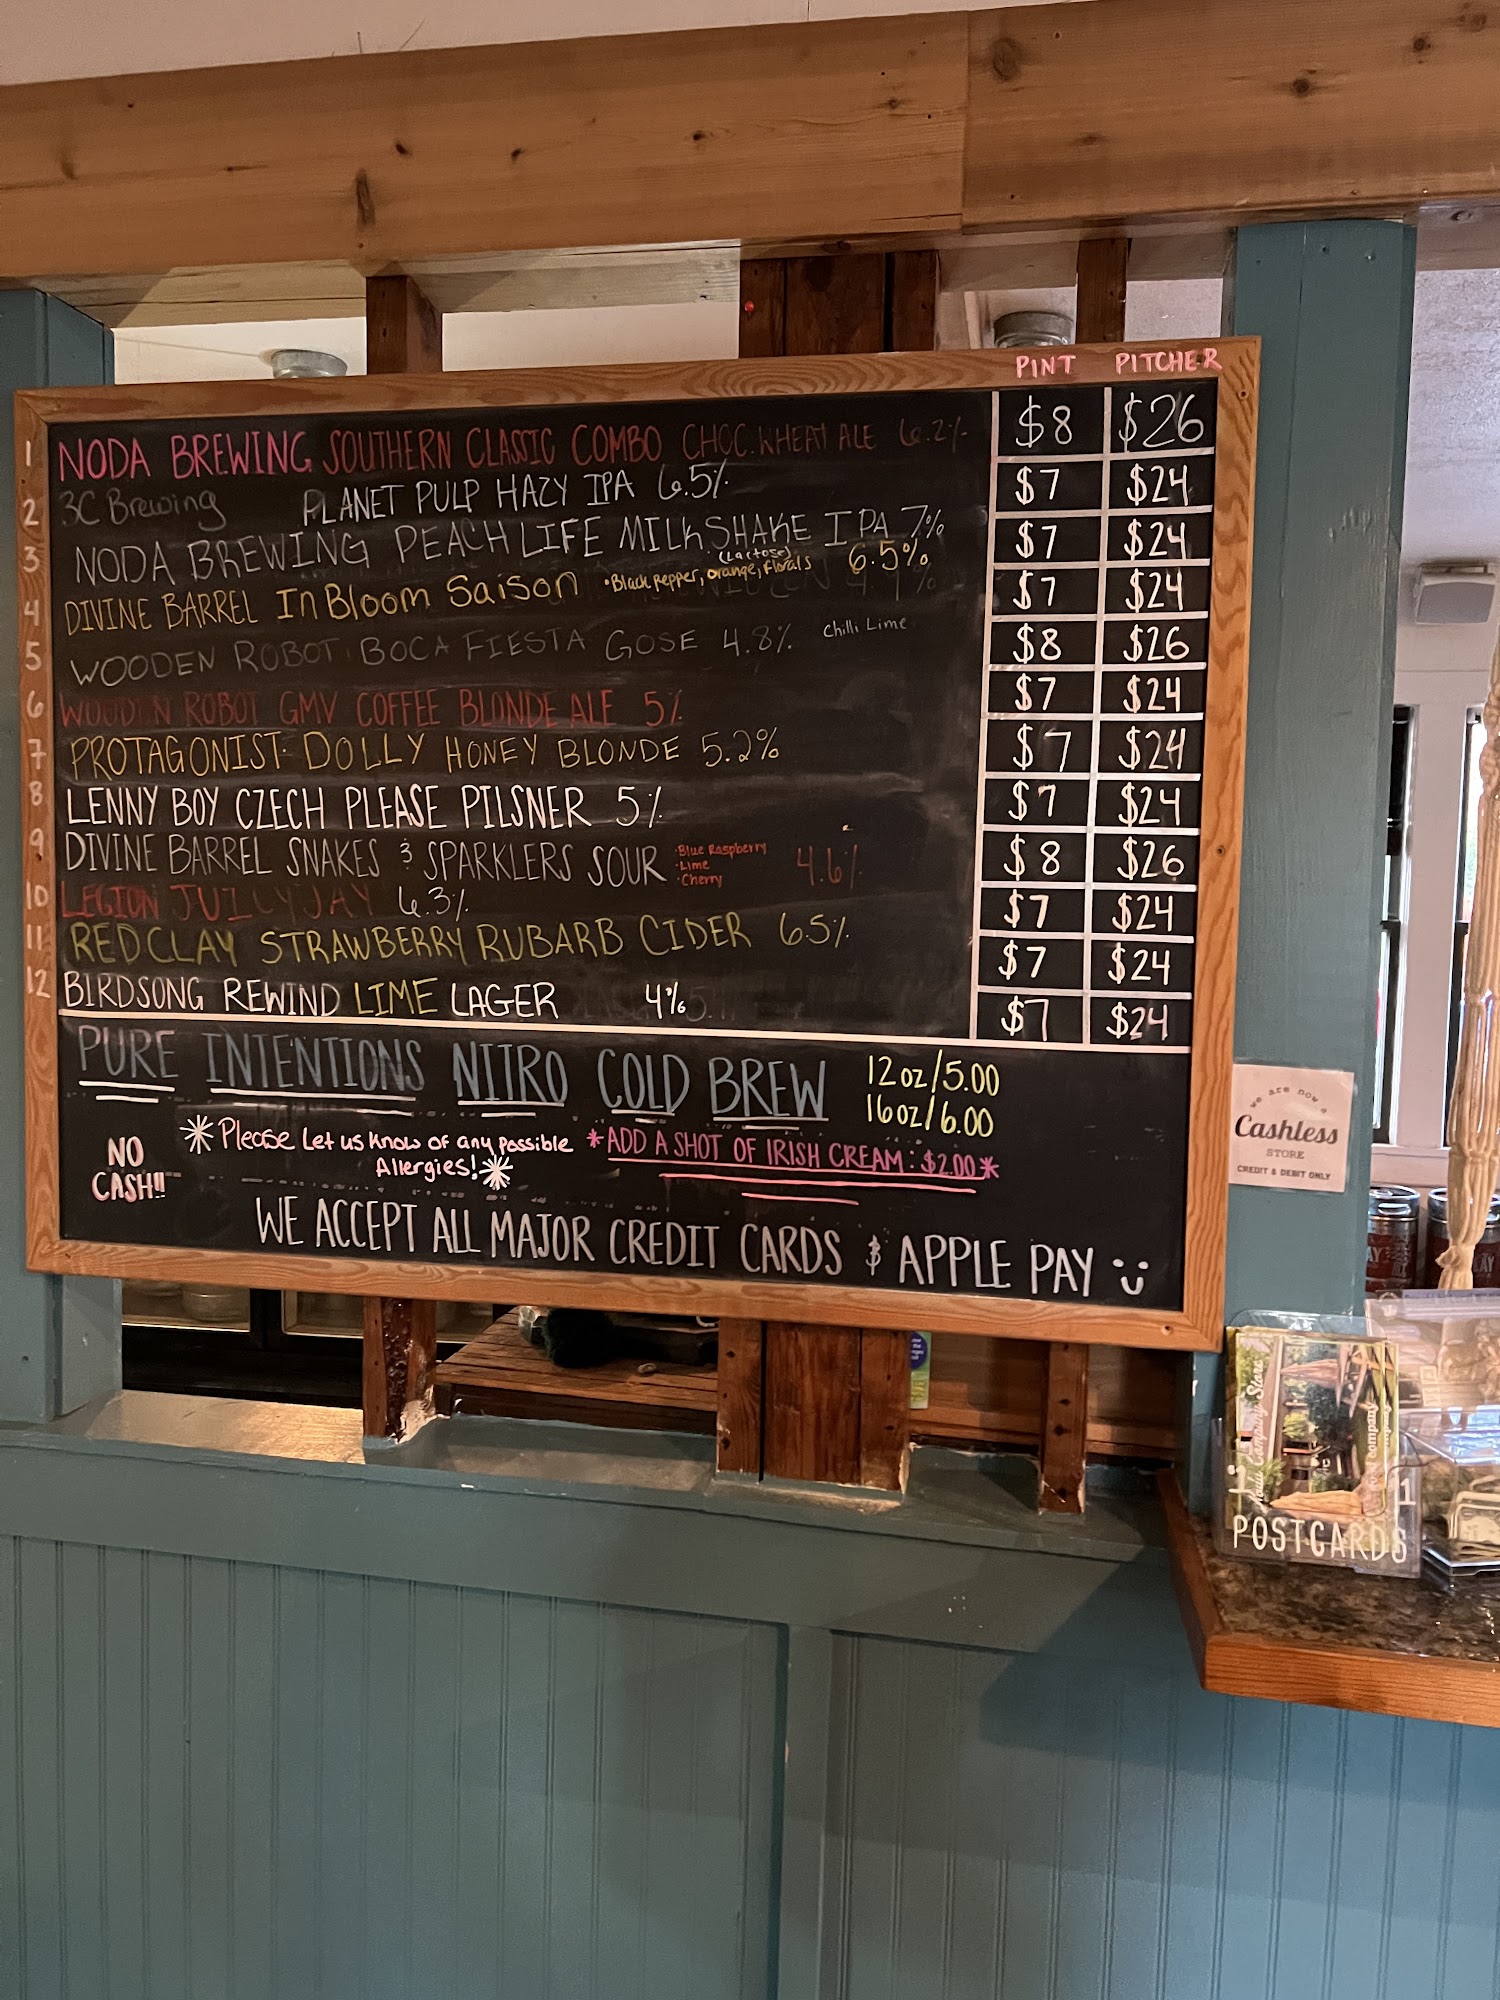 PINT PITCHER
1 NODA BREWING SOUTHERN CLASSIC COMBO CHOC. WHEAT ALE 6.2% $8 $26
2 3C Brewing PLANET PULP HAZY IPA 6.5% $7 $24
3 NODA BREWING PEACH LIFE MILKSHAKE IPA 7% $7 $24
(Lactose)
4 DIVINE BARREL In Bloom Saison •Black pepper, orange, florals 6.5% $7 $24
5 WOODEN ROBOT BOCA FIESTA GOSE 4.8% Chilli Lime $8 $26
6 WOODEN ROBOT GMV COFFEE BLONDE ALE 5% $7 $24
7 PROTAGONIST DOLLY HONEY BLONDE 5.2% $7 $24
8 LENNY BOY CZECH PLEASE PILSNER 5% $7 $24
9 DIVINE BARREL SNAKES & SPARKLERS SOUR 4.6% $8 $26
•Blue Raspberry
•Lime
•Cherry
10 LEGION JUICY JAY 6.3% $7 $24
11 RED CLAY STRAWBERRY RUBARB CIDER 6.5% $7 $24
12 BIRDSONG REWIND LIME LAGER 4% $7 $24
PURE INTENTIONS NITRO COLD BREW 12oz/5.00
16oz/6.00
NO
CASH!!
*Please Let us know of any possible
Allergies!*
*ADD A SHOT OF IRISH CREAM: $2.00*
WE ACCEPT ALL MAJOR CREDIT CARDS & APPLE PAY
we are now a
Cashless
STORE
CREDIT & DEBIT ONLY
POSTCARDS